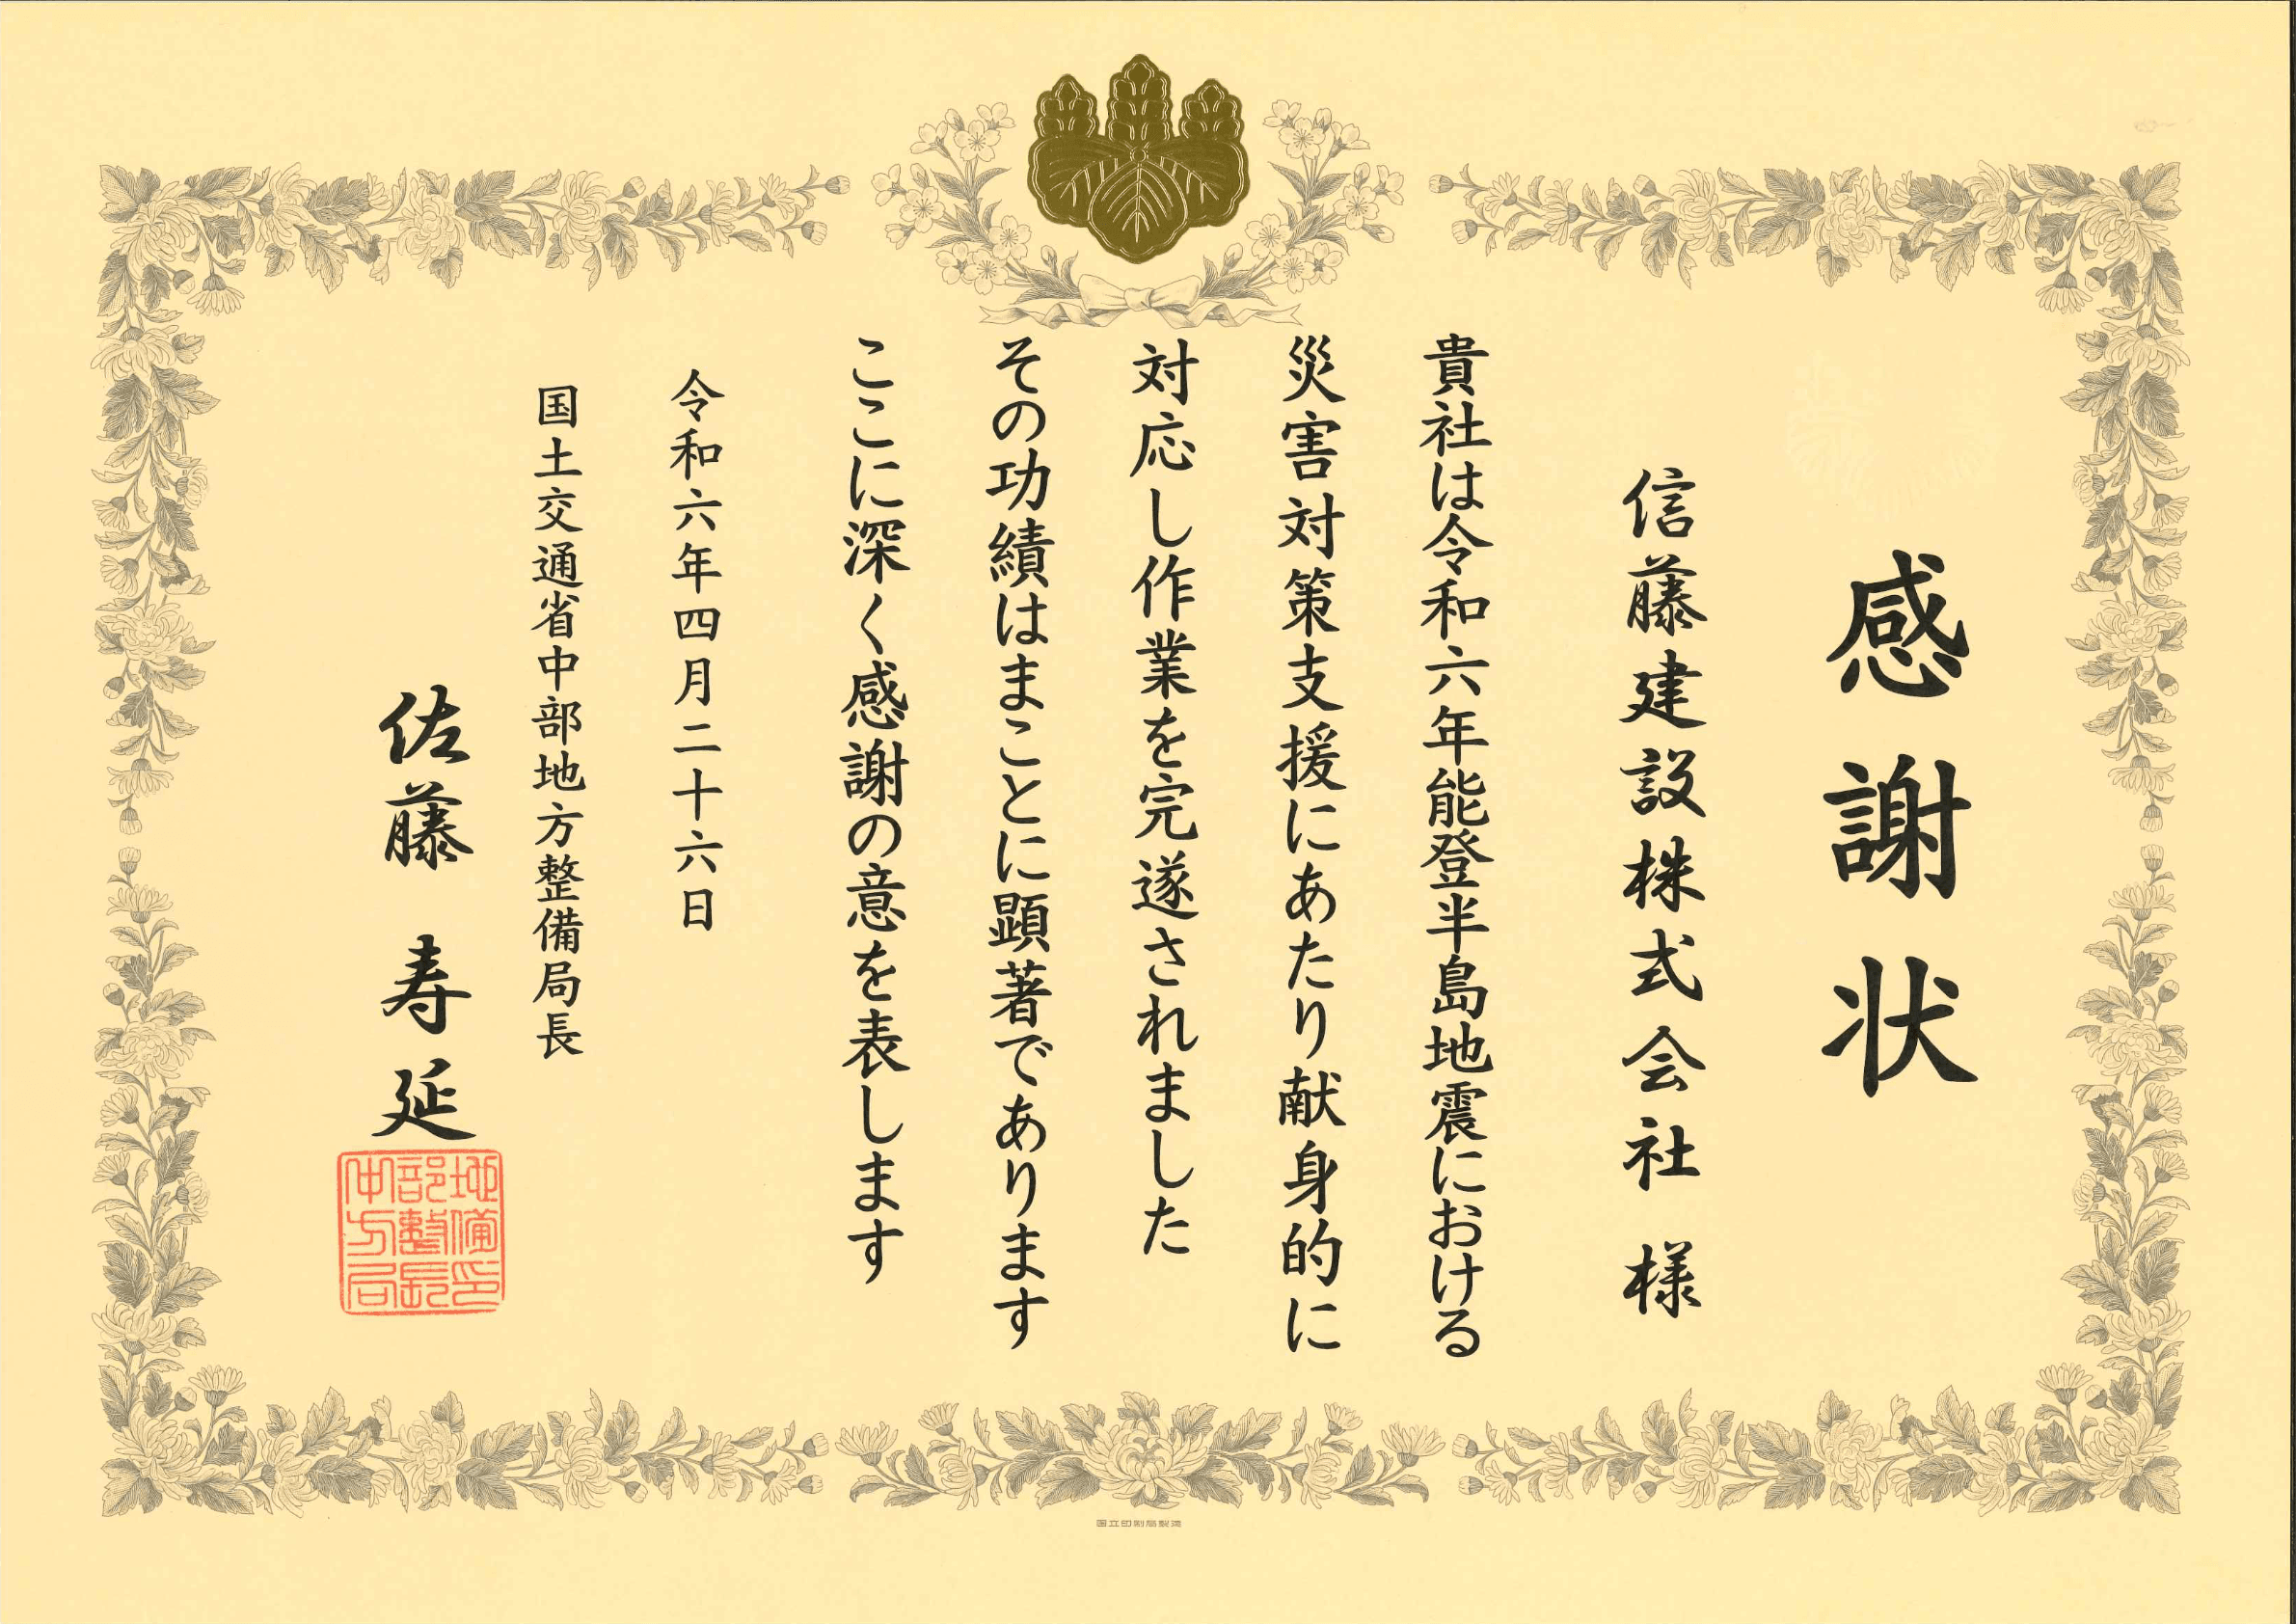 感謝状
信藤建設株式会社 様
貴社は令和六年能登半島地震における
災害対策支援にあたり献身的に
対応し作業を完遂されました
その功績はまことに顕著であります
ここに深く感謝の意を表します
令和六年四月二十六日
国土交通省中部地方整備局長
佐藤 寿延
地備印
部整長
中方局
国立印刷局製造